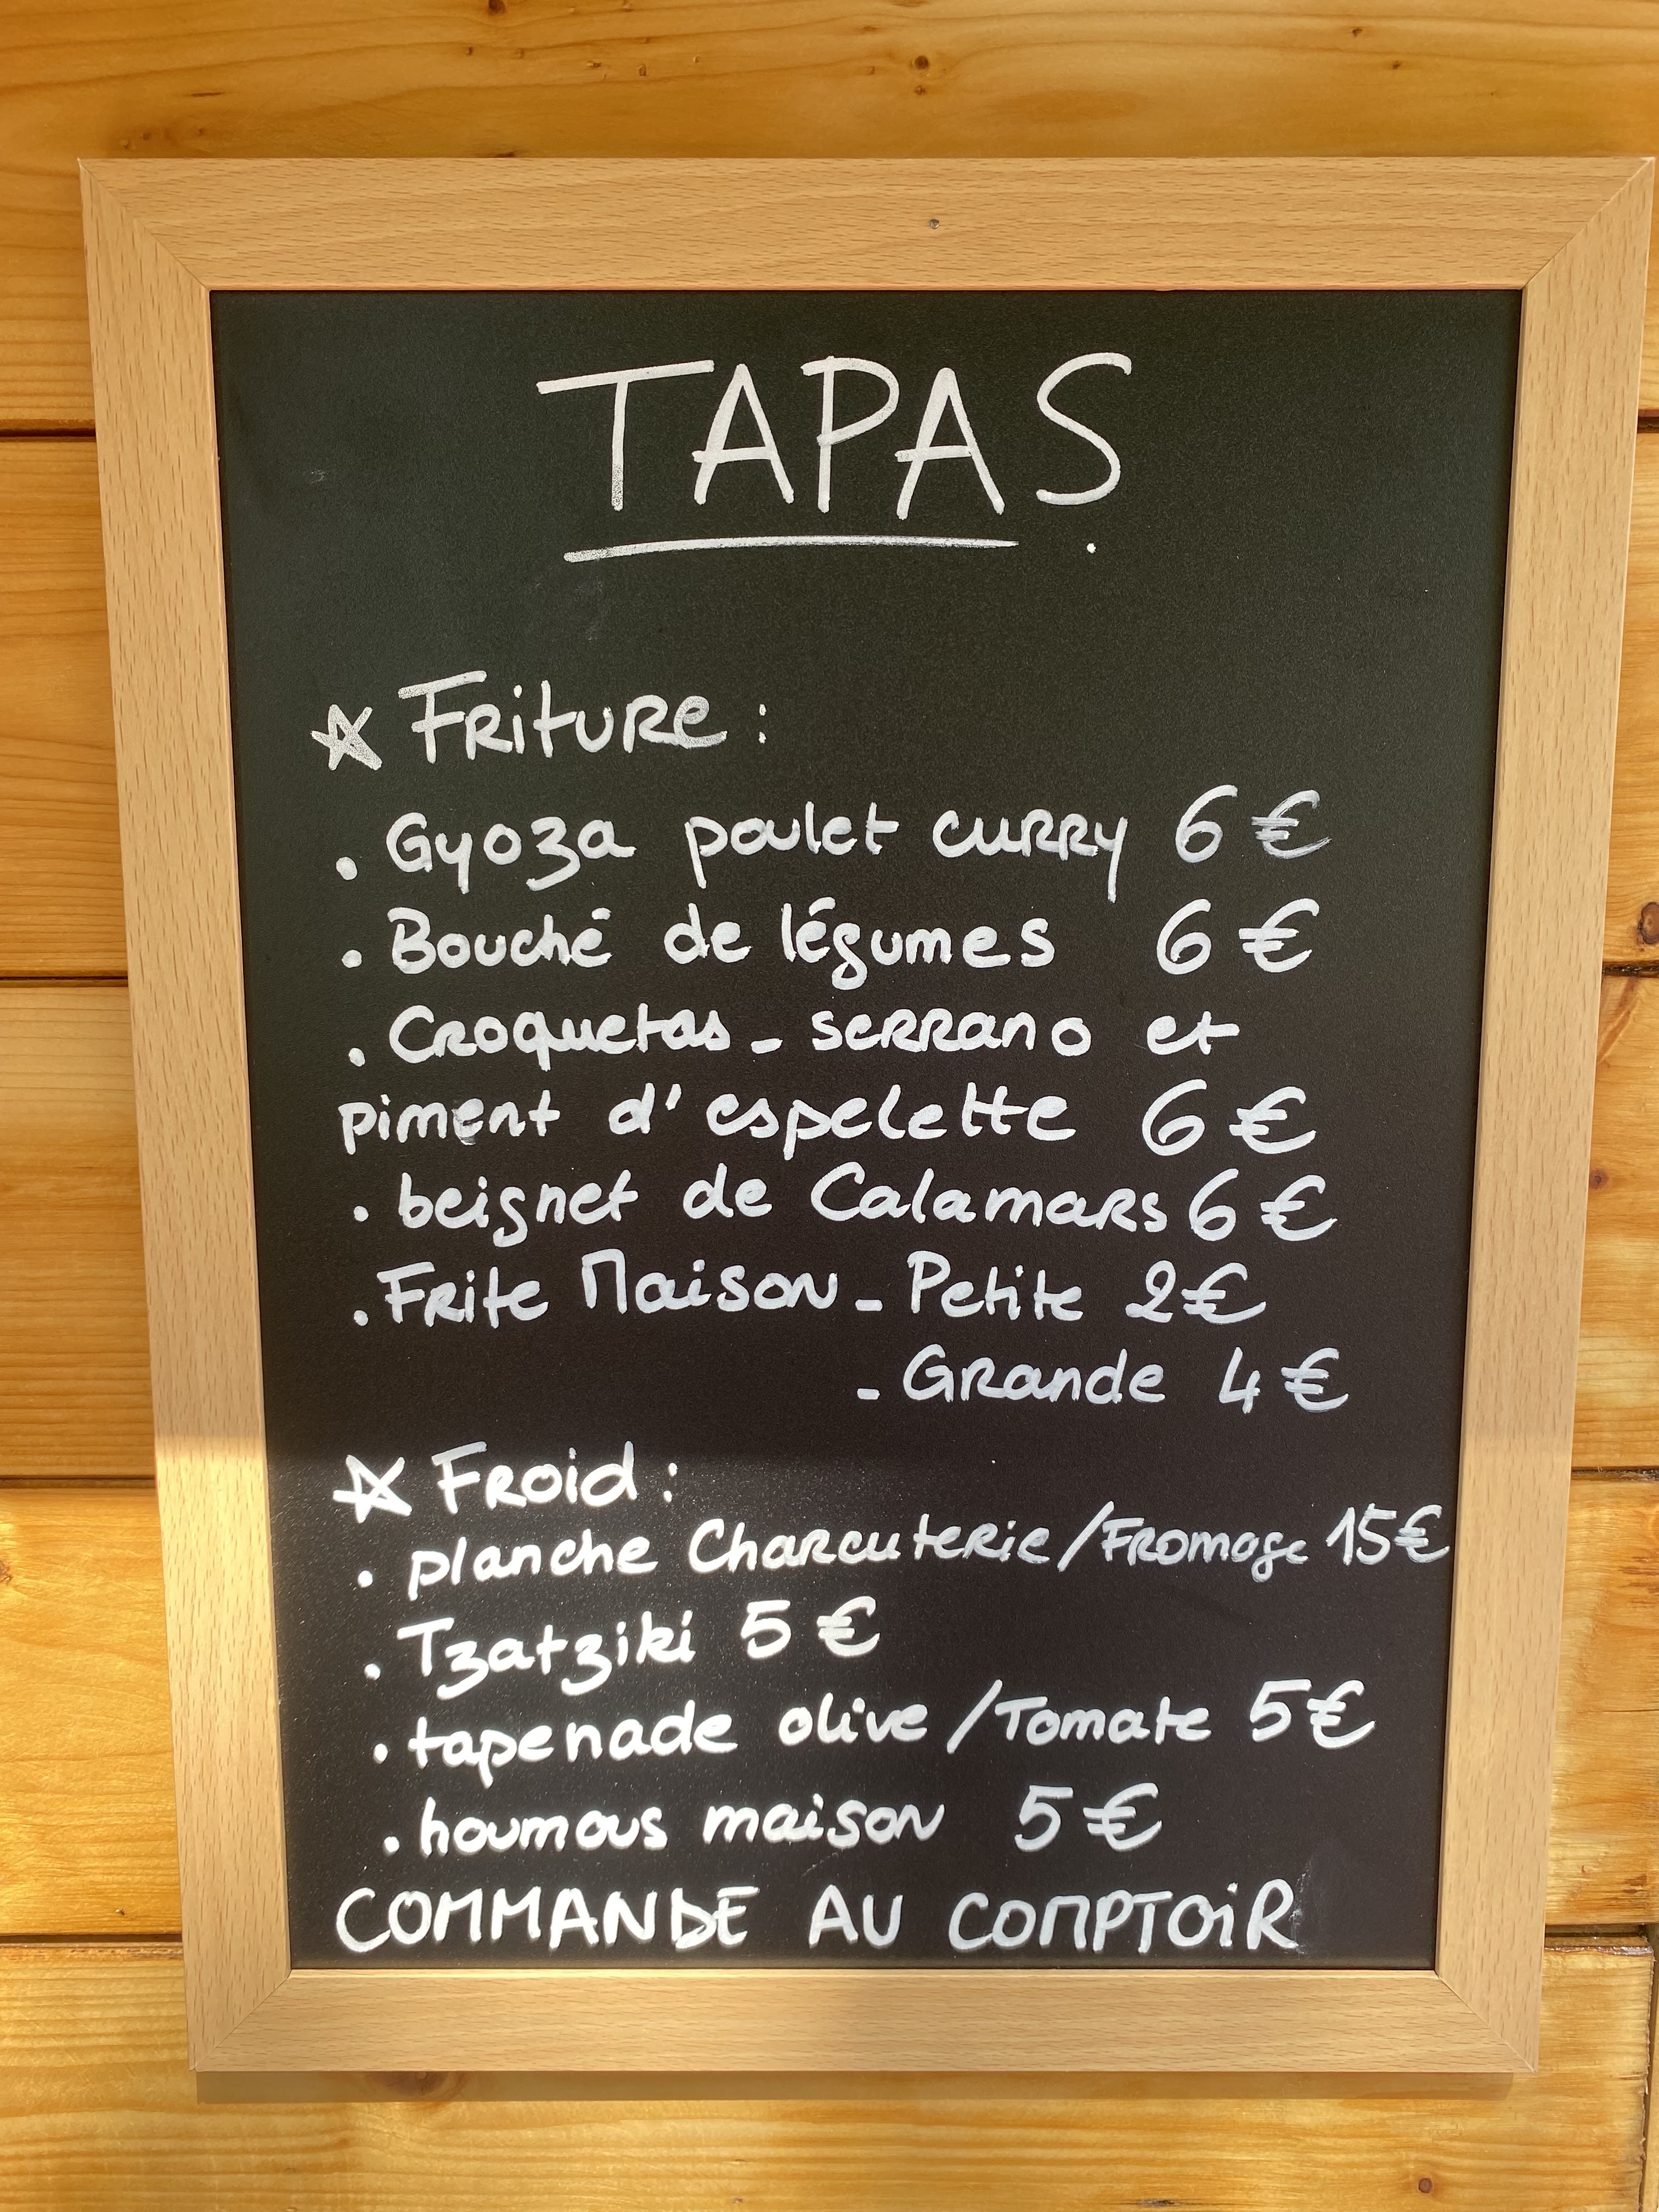 TAPAS
☆ FRiTURE :
. Gyoza poulet curry 6 €
. Bouché de légumes 6 €
. Croquetas - serrano et
piment d'espelette 6 €
. beignet de Calamars 6 €
. Frite Maison - Petite 2 €
- Grande 4 €
☆ FROID :
. planche Charcuterie/Fromage 15 €
. Tzatziki 5 €
. tapenade olive/Tomate 5 €
. houmous maison 5 €
COMMANDE AU COMPTOIR